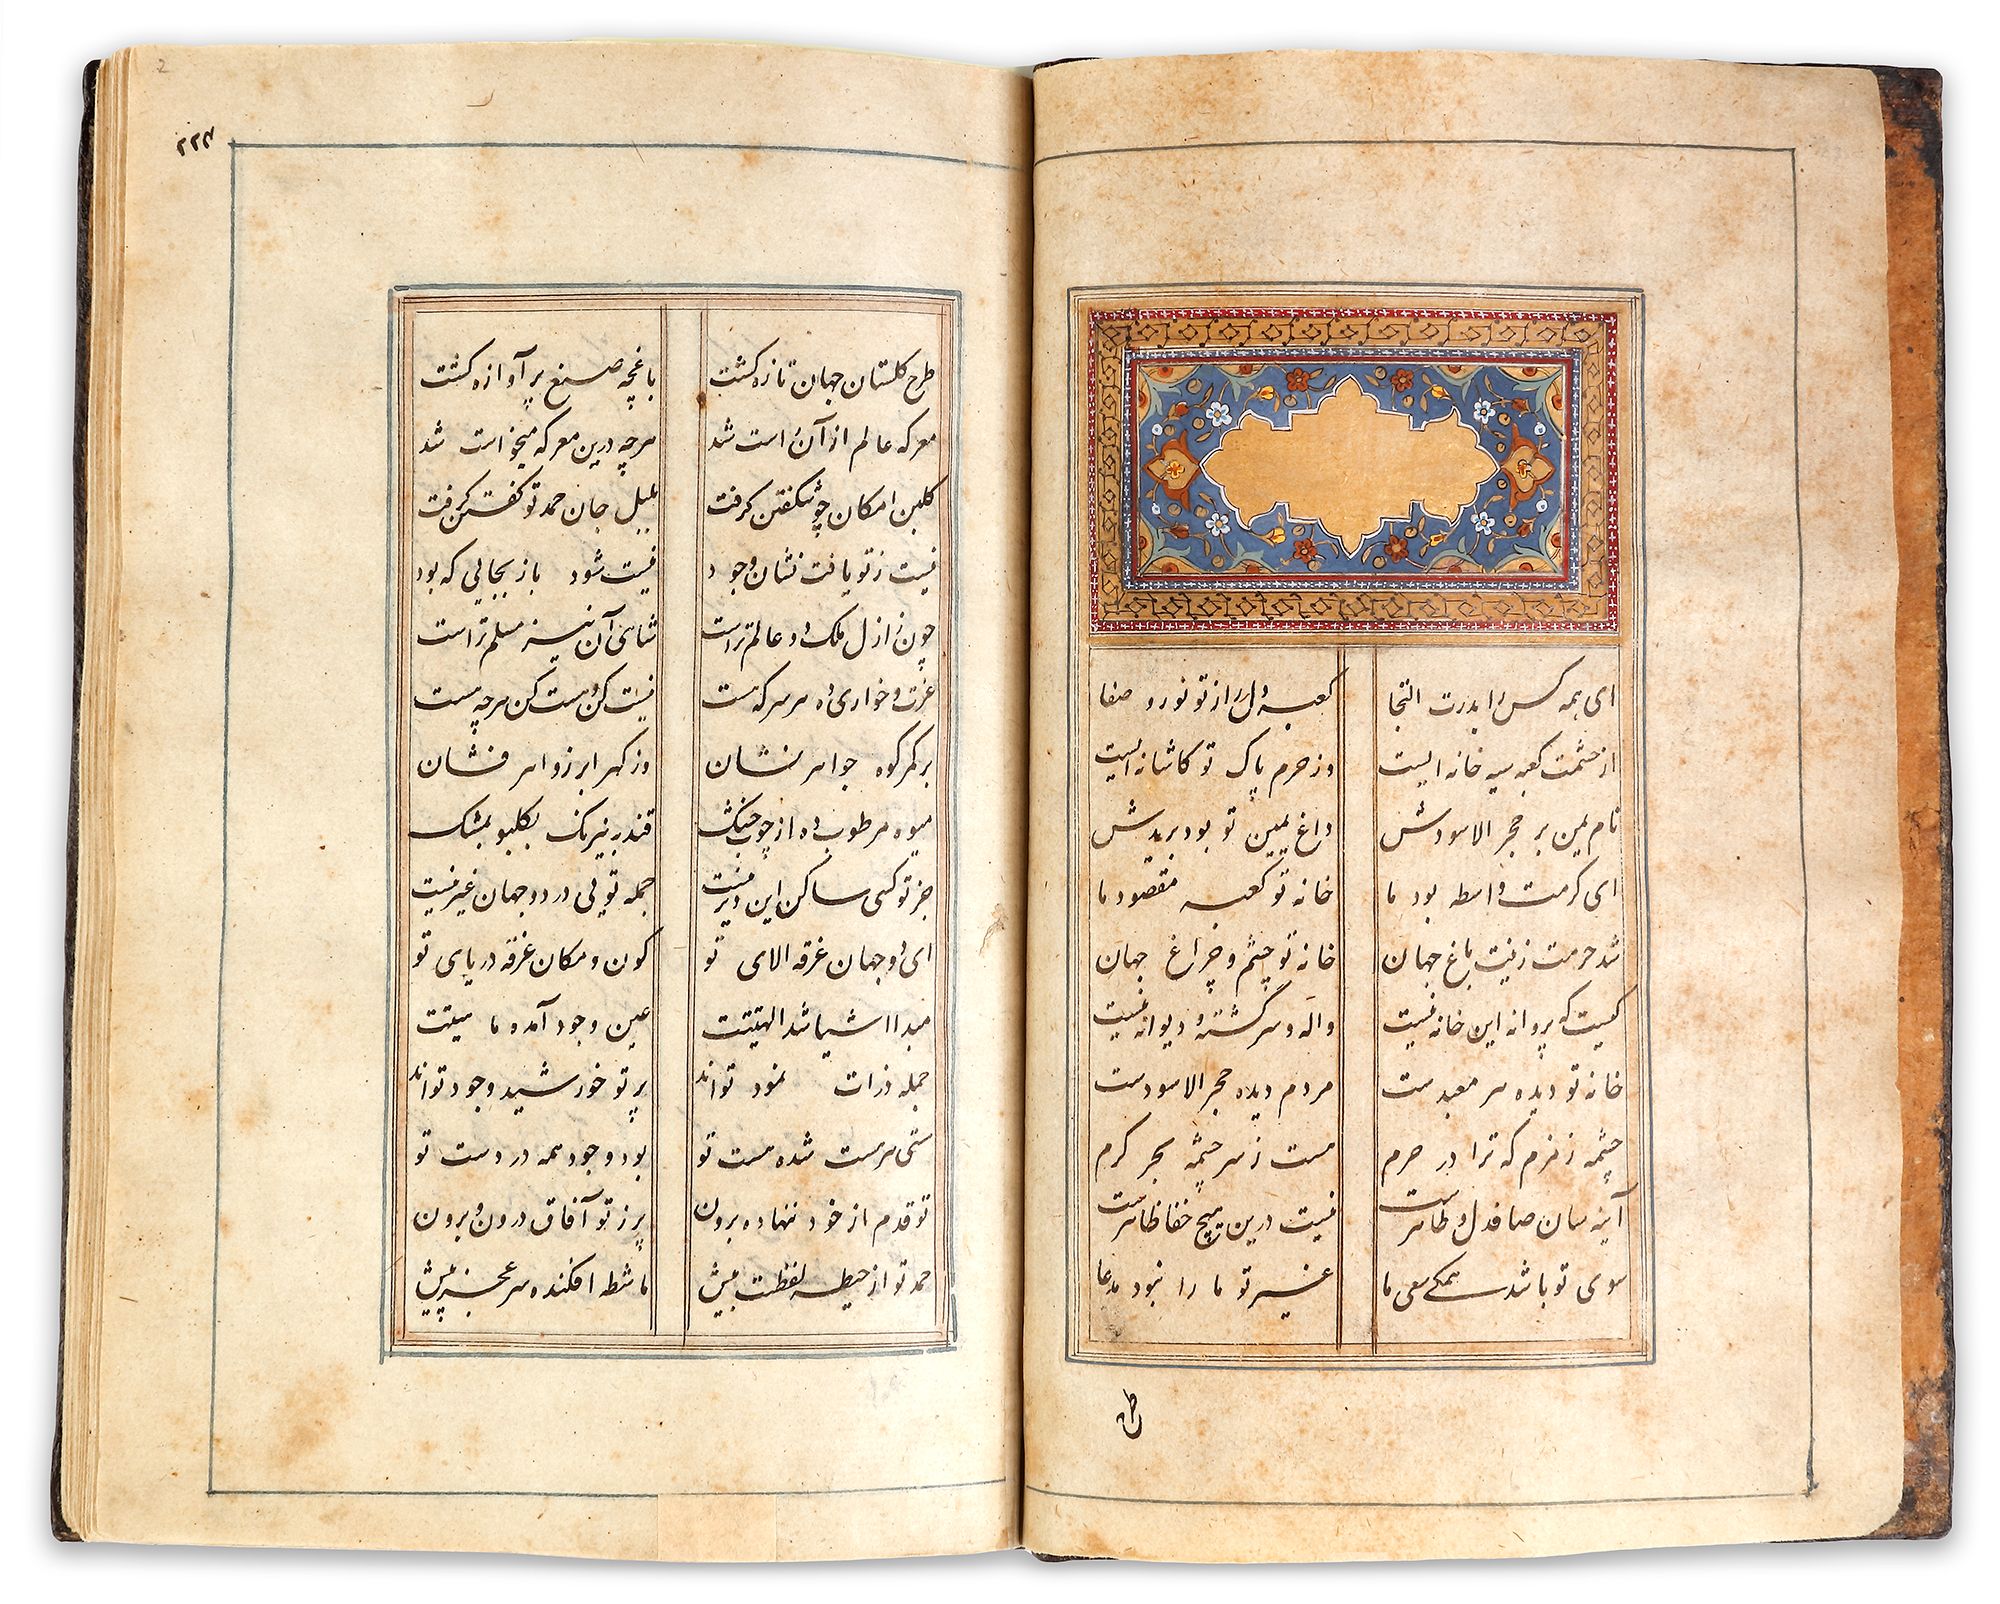 ای همه کس را بدرت التجا کعبه دل را از تو نور و صفا
از حشمت کعبه سیه خانه ایست وز حرم پاک تو کاشانه ایست
نام یمین بر حجر الاسودش داغ یمین تو بود بر یدش
ای کرمت واسطه بود ما خانه تو کعبه مقصود ما
شد حرمت زینت باغ جهان خانه تو چشم و چراغ جهان
کیست که پروانه این خانه نیست واله و سرگشته و دیوانه نیست
خانه تو دیده هر معبدست مردم دیده حجر الاسودست
چشمه زمزم که ترا در حرم هست ز سرچشمه بحر کرم
آینه سان صافدل و طاهرست نیست درین هیچ خفا ظاهرست
سوی تو باشد همگی سعی ما غیر تو ما را نبود مدعا
طرح
۲۲۳
2
طرح کلستان جهان تازه کشت باغچه صنع پر آوازه کشت
معرکه عالم از آن است شد هرچه درین معرکه میخواست شد
کلبن امکان چو شکفتن کرفت بلبل جان حمد تو کفتن کرفت
نیست ز تو یافت نشان وجود نیست شود باز بجالی که بود
چون ز ازل ملک دو عالم تراست شاهی آن نیز مسلم تراست
عزت و خواری ده هر سر که هست نیست کن و هست کن هرچه هست
بر کمر کوه جواهر نشان وز کهر ابر زواهر فشان
میوه مرطوب ده از چوب خشک قند به نیرنک بکلبو بمشک
جز تو کسی ساکن این دیر نیست جمله تویی در دو جهان غیر نیست
ای دو جهان غرقه الای تو کون و مکان غرقه دریای تو
مبدا اشیا شد الهیتت عین وجود آمده ماهیتت
جمله ذرات نمود تواند پرتو خورشید وجود تواند
هستی هر هست شده هست تو بود وجود همه در دست تو
تو قدم از خود ننهاده برون پر ز تو آفاق درون و برون
حمد تو از حیطه لفظت بیش ماشطه افکنده سر عجز پیش